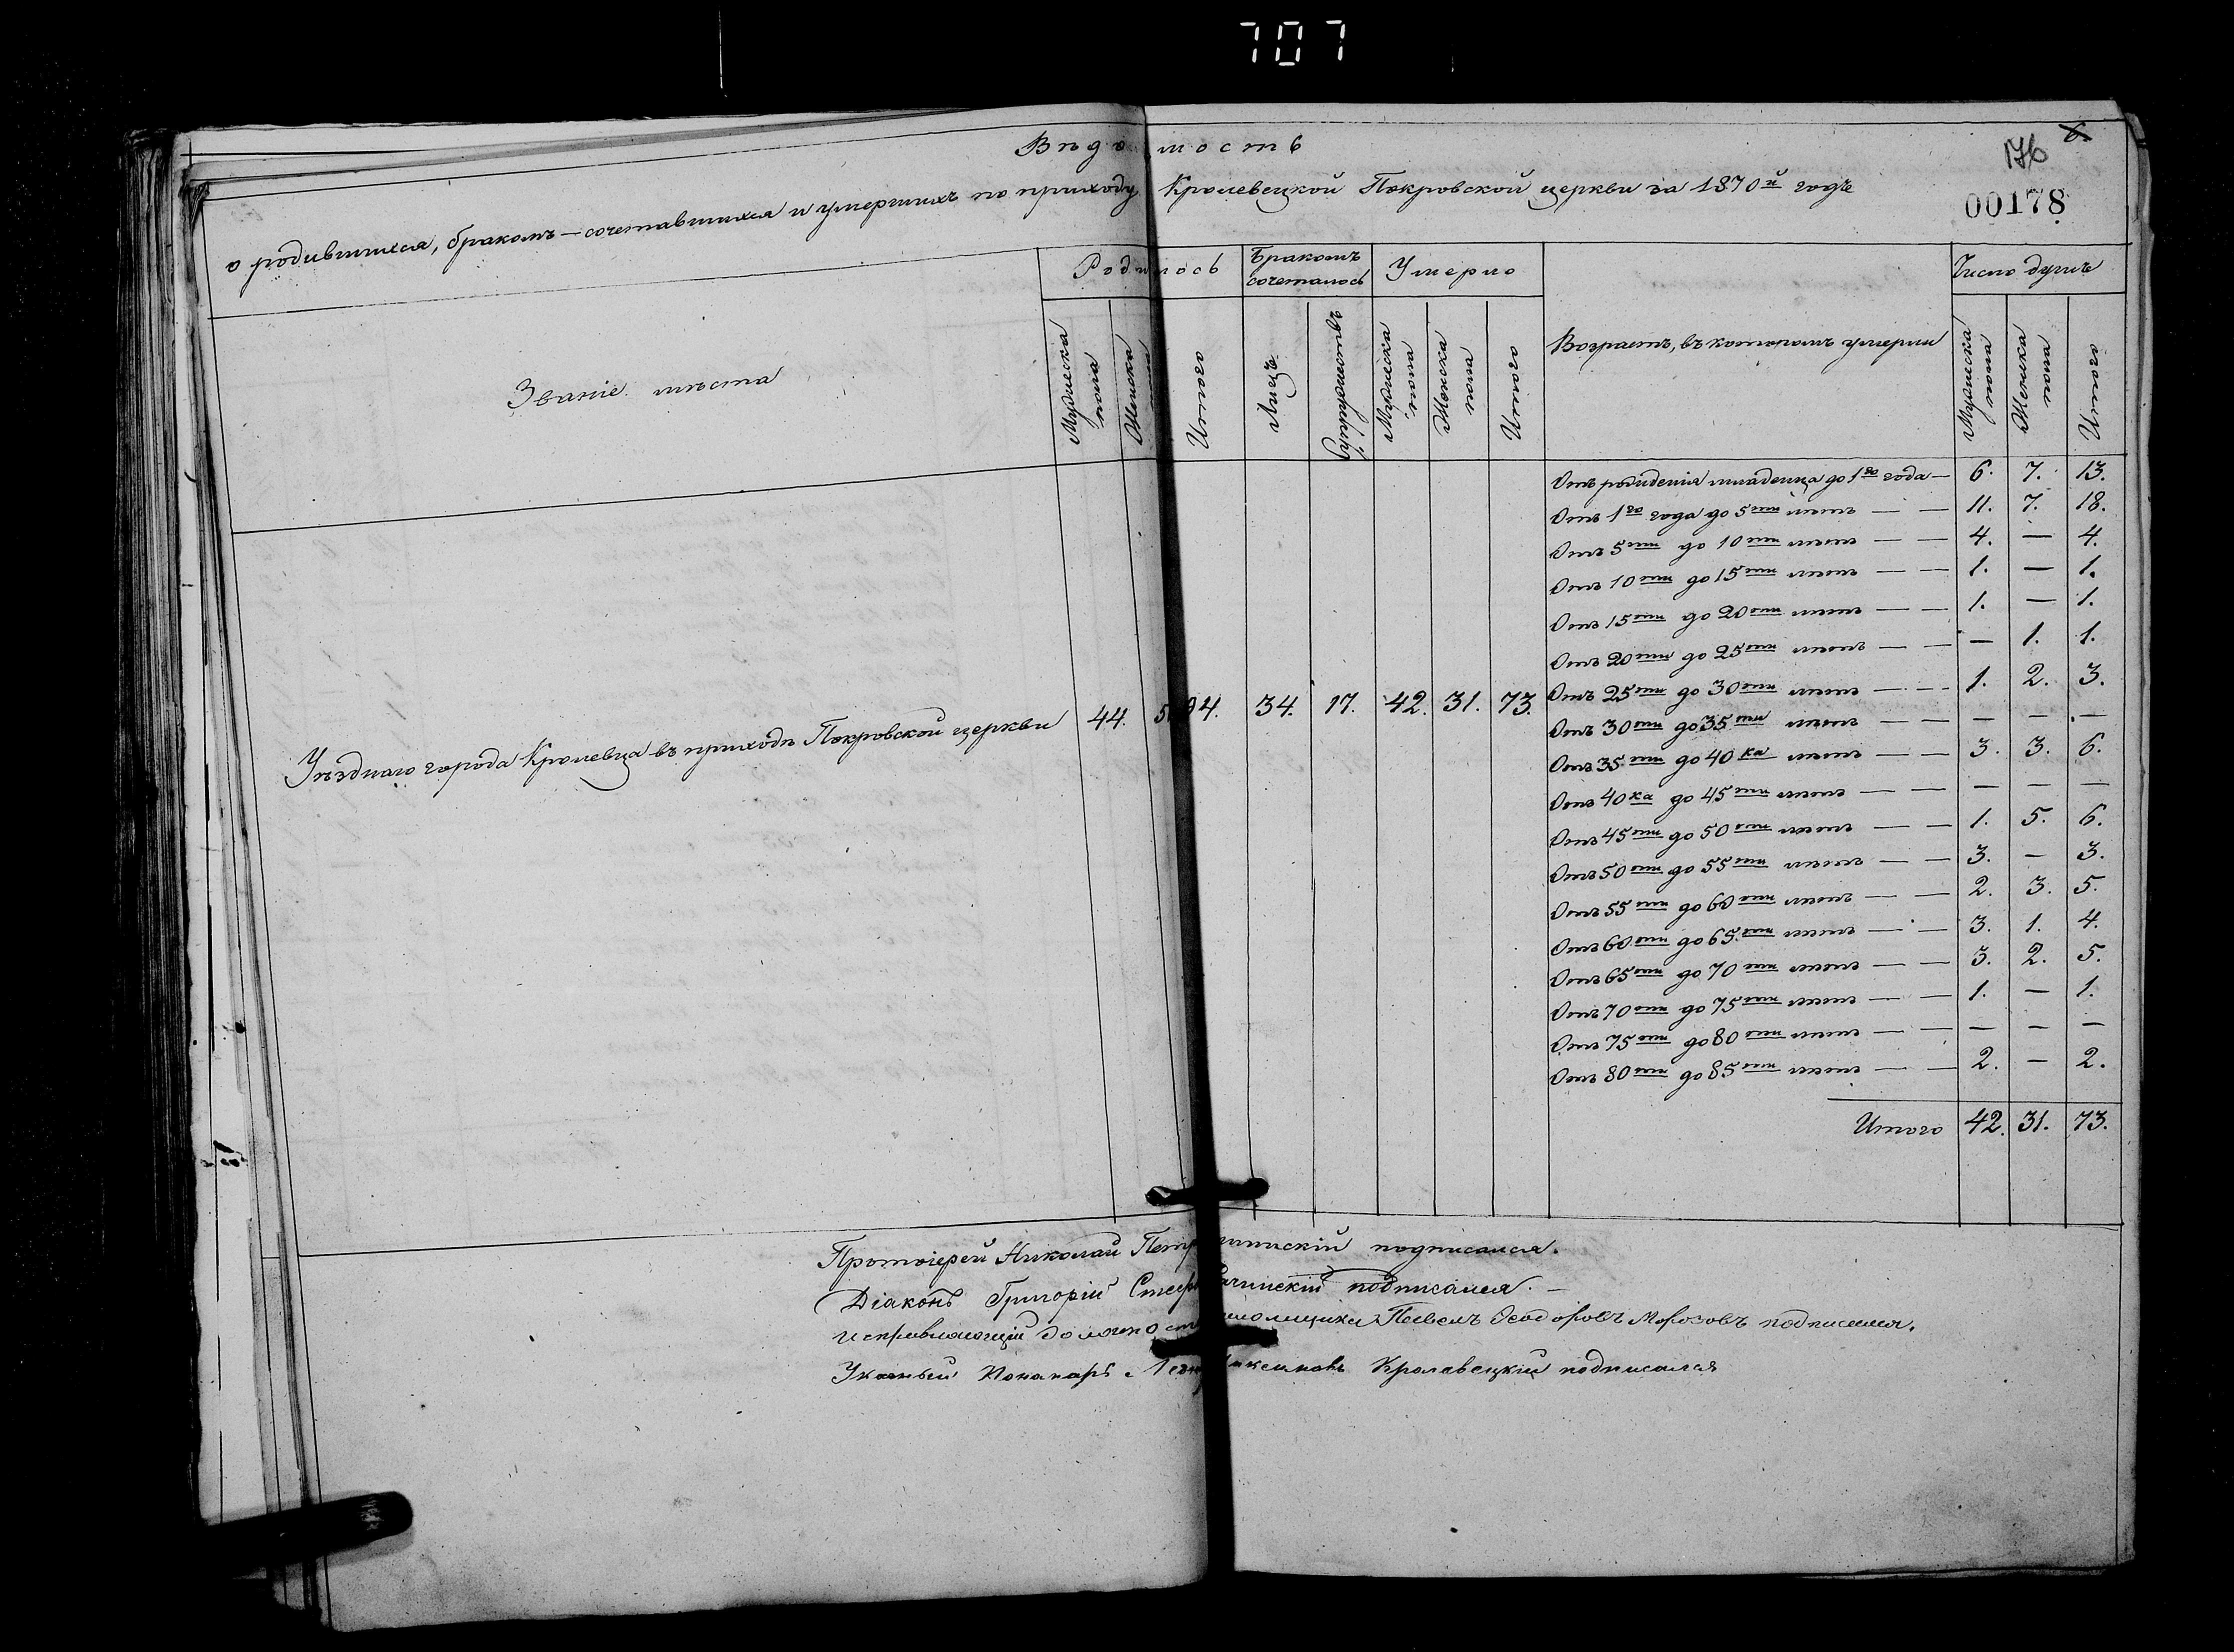 707
Вѣдомость
176
о родившихся, бракомъ-сочетавшихся и умершихъ по приходу Кролевецкой Покровской церкви за 1870й годъ
00178
Званіе мѣста
Родилось
Бракомъ сочеталось
Умерло
Возрастъ, въ которомъ умерли
Число душъ
Мужеска пола
Женска
Итого
Лицъ
Супружествъ
Мужеска пола
Женска пола
Итого
Мужеска пола
Женска пола
Итого
Уѣзднаго города Кролевца въ приходѣ Покровской церкви 44. 34. 17. 42. 31. 73.
Отъ рожденія младенца до 1го года — 6. 7. 13.
Отъ 1го года до 5ти лѣтъ — — 11. 7. 18.
Отъ 5ти до 10ти лѣтъ — — 4. — 4.
Отъ 10ти до 15ти лѣтъ — — 1. — 1.
Отъ 15ти до 20ти лѣтъ — — 1. — 1.
Отъ 20ти до 25ти лѣтъ — — — 1. 1.
Отъ 25ти до 30ти лѣтъ — — 1. 2. 3.
Отъ 30ти до 35ти лѣтъ — — — — —
Отъ 35ти до 40ка лѣтъ — — 3. 3. 6.
Отъ 40ка до 45ти лѣтъ — — — — —
Отъ 45ти до 50ти лѣтъ — — 1. 5. 6.
Отъ 50ти до 55ти лѣтъ — — 3. — 3.
Отъ 55ти до 60ти лѣтъ — — 2. 3. 5.
Отъ 60ти до 65ти лѣтъ — — 3. 1. 4.
Отъ 65ти до 70ти лѣтъ — — 3. 2. 5.
Отъ 70ти до 75ти лѣтъ — — 1. — 1.
Отъ 75ти до 80ти лѣтъ — — — — —
Отъ 80ти до 85ти лѣтъ — — 2. — 2.
Итого 42. 31. 73.
Протоіерей Николай подписался.
Діаконъ Григорій подписался. —
Исправляющій должность Павелъ Ѳеодоровъ Морозовъ подписался.
Указный Пономарь Кролевецкій подписался